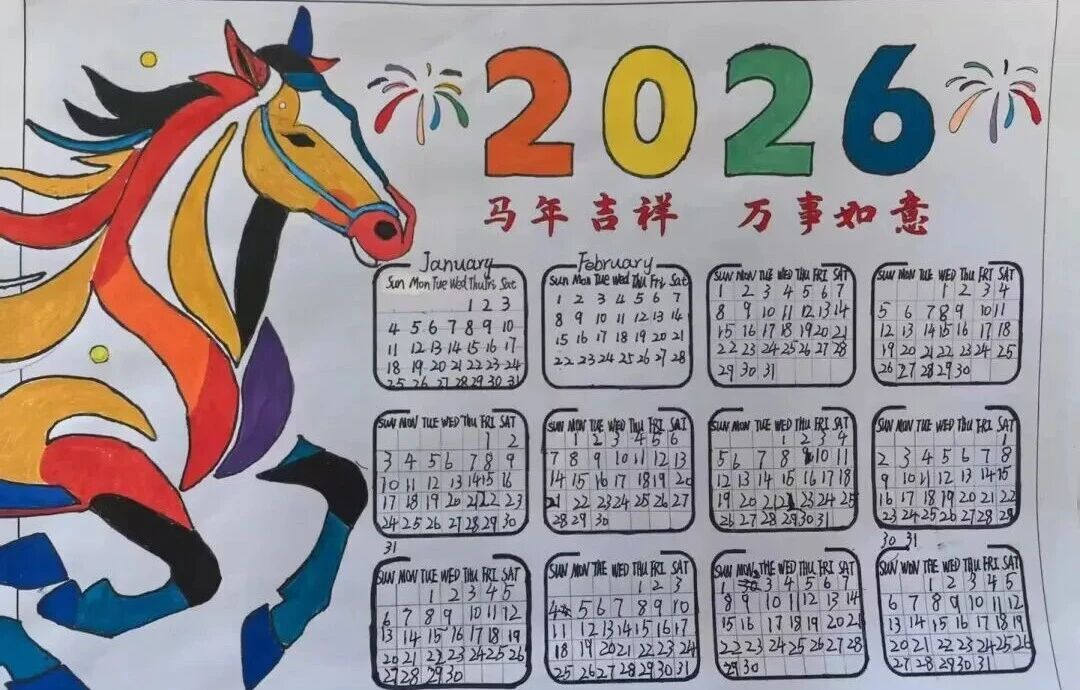 2026
马年吉祥 万事如意
January
Sun Mon Tue Wed Thu Fri Sat
1 2 3
4 5 6 7 8 9 10
11 12 13 14 15 16 17
18 19 20 21 22 23 24
25 26 27 28 29 30 31
February
Sun Mon Tue Wed Thu Fri Sat
1 2 3 4 5 6 7
8 9 10 11 12 13 14
15 16 17 18 19 20 21
22 23 24 25 26 27 28
SUN MON TUE WED THU FRI SAT
1 2 3 4 5 6 7
8 9 10 11 12 13 14
15 16 17 18 19 20 21
22 23 24 25 26 27 28
29 30 31
SUN MON TUE WED THU FRI SAT
1 2 3 4
5 6 7 8 9 10 11
12 13 14 15 16 17 18
19 20 21 22 23 24 25
26 27 28 29 30
SUN MON TUE WED THU FRI SAT
1 2
3 4 5 6 7 8 9
10 11 12 13 14 15 16
17 18 19 20 21 22 23
24 25 26 27 28 29 30
31
SUN MON TUE WED THU FRI SAT
1 2 3 4 5 6
7 8 9 10 11 12 13
14 15 16 17 18 19 20
21 22 23 24 25 26 27
28 29 30
SUN MON TUE WED THU FRI SAT
1 2 3 4
5 6 7 8 9 10 11
12 13 14 15 16 17 18
19 20 21 22 23 24 25
26 27 28 29 30 31
SUN MON TUE WED THU FRI SAT
1
2 3 4 5 6 7 8
9 10 11 12 13 14 15
16 17 18 19 20 21 22
23 24 25 26 27 28 29
30 31
SUN MON TUE WED THU FRI SAT
1 2 3 4 5
6 7 8 9 10 11 12
13 14 15 16 17 18 19
20 21 22 23 24 25 26
27 28 29 30
SUN MON THE WED THU FRI SAT
1 2 3
4 5 6 7 8 9 10
11 12 13 14 15 16 17
18 19 20 21 22 23 24
25 26 27 28 29 30 31
SUN MON THE WED THU FRI SAT
1 3 4 5 6 7
8 9 10 11 12 13 14
15 16 17 18 19 20 21
22 23 24 25 26 27 28
29 30
SUN WON THE WED THU FRI SAT
1 2 3 4 5
6 7 8 9 10 11 12
13 14 15 16 17 18 19
20 21 22 23 24 25 26
27 28 29 30 31